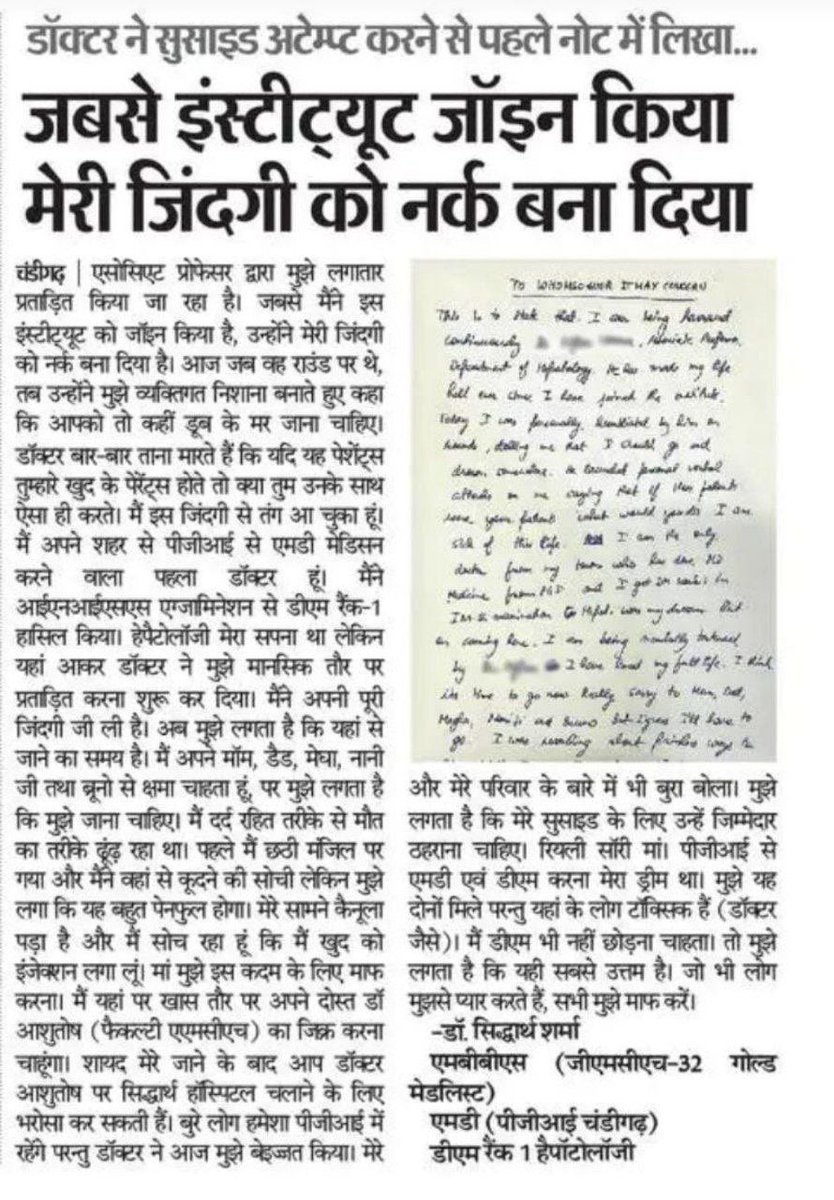 डॉक्टर ने सुसाइड अटेम्प्ट करने से पहले नोट में लिखा...
जबसे इंस्टीट्यूट जॉइन किया
मेरी जिंदगी को नर्क बना दिया
चंडीगढ़ | एसोसिएट प्रोफेसर द्वारा मुझे लगातार
प्रताड़ित किया जा रहा है। जबसे मैंने इस
इंस्टीट्यूट को जॉइन किया है, उन्होंने मेरी जिंदगी
को नर्क बना दिया है। आज जब वह राउंड पर थे,
तब उन्होंने मुझे व्यक्तिगत निशाना बनाते हुए कहा
कि आपको तो कहीं डूब के मर जाना चाहिए।
डॉक्टर बार-बार ताना मारते हैं कि यदि यह पेशेंट्स
तुम्हारे खुद के पेरेंट्स होते तो क्या तुम उनके साथ
ऐसा ही करते। मैं इस जिंदगी से तंग आ चुका हूं।
मैं अपने शहर से पीजीआई से एमडी मेडिसन
करने वाला पहला डॉक्टर हूं। मैंने
आईएनआईएसएस एग्जामिनेशन से डीएम रैंक-1
हासिल किया। हेपैटोलॉजी मेरा सपना था लेकिन
यहां आकर डॉक्टर ने मुझे मानसिक तौर पर
प्रताड़ित करना शुरू कर दिया। मैंने अपनी पूरी
जिंदगी जी ली है। अब मुझे लगता है कि यहां से
जाने का समय है। मैं अपने मॉम, डैड, मेघा, नानी
जी तथा ब्रूनो से क्षमा चाहता हूं, पर मुझे लगता है
कि मुझे जाना चाहिए। मैं दर्द रहित तरीके से मौत
का तरीके ढूंढ़ रहा था। पहले मैं छठी मंजिल पर
गया और मैंने वहां से कूदने की सोची लेकिन मुझे
लगा कि यह बहुत पेनफुल होगा। मेरे सामने कैनूला
पड़ा है और मैं सोच रहा हूं कि मैं खुद को
इंजेक्शन लगा लूं। मां मुझे इस कदम के लिए माफ
करना। मैं यहां पर खास तौर पर अपने दोस्त डॉ
आशुतोष (फैकल्टी एएमसीएच) का जिक्र करना
चाहूंगा। शायद मेरे जाने के बाद आप डॉक्टर
आशुतोष पर सिद्धार्थ हॉस्पिटल चलाने के लिए
भरोसा कर सकती हैं। बुरे लोग हमेशा पीजीआई में
रहेंगे परन्तु डॉक्टर ने आज मुझे बेइज्जत किया। मेरे
TO WHOMSOEVER IT MAY CONCERN
This is to state that I am being harassed
continuously
Department of Hepatology. He has made my life
hell ever since I have joined the institute.
Today I was personally humiliated by him on
rounds, telling me that I should go and
drown
attacks on me saying that if these patients
were your I am
sick of this life. I am the only
doctor from my town who has done MD
Medicine from PGI and I got
examination was my dream But
on coming here, I am being mentally tortured
by I have lived my full life. I think
its time to go now Really sorry to Mom, Dad,
Megha, Nani ji and Bruno but I guess I'll have to
go. I was about painless ways to
और मेरे परिवार के बारे में भी बुरा बोला। मुझे
लगता है कि मेरे सुसाइड के लिए उन्हें जिम्मेदार
ठहराना चाहिए। रियली सॉरी मां। पीजीआई से
एमडी एवं डीएम करना मेरा ड्रीम था। मुझे यह
दोनों मिले परन्तु यहां के लोग टॉक्सिक हैं (डॉक्टर
जैसे)। मैं डीएम भी नहीं छोड़ना चाहता। तो मुझे
लगता है कि यही सबसे उत्तम है। जो भी लोग
मुझसे प्यार करते हैं, सभी मुझे माफ करें।
-डॉ. सिद्धार्थ शर्मा
एमबीबीएस (जीएमसीएच-32 गोल्ड
मेडलिस्ट)
एमडी (पीजीआई चंडीगढ़)
डीएम रैंक 1 हैपॉटोलॉजी